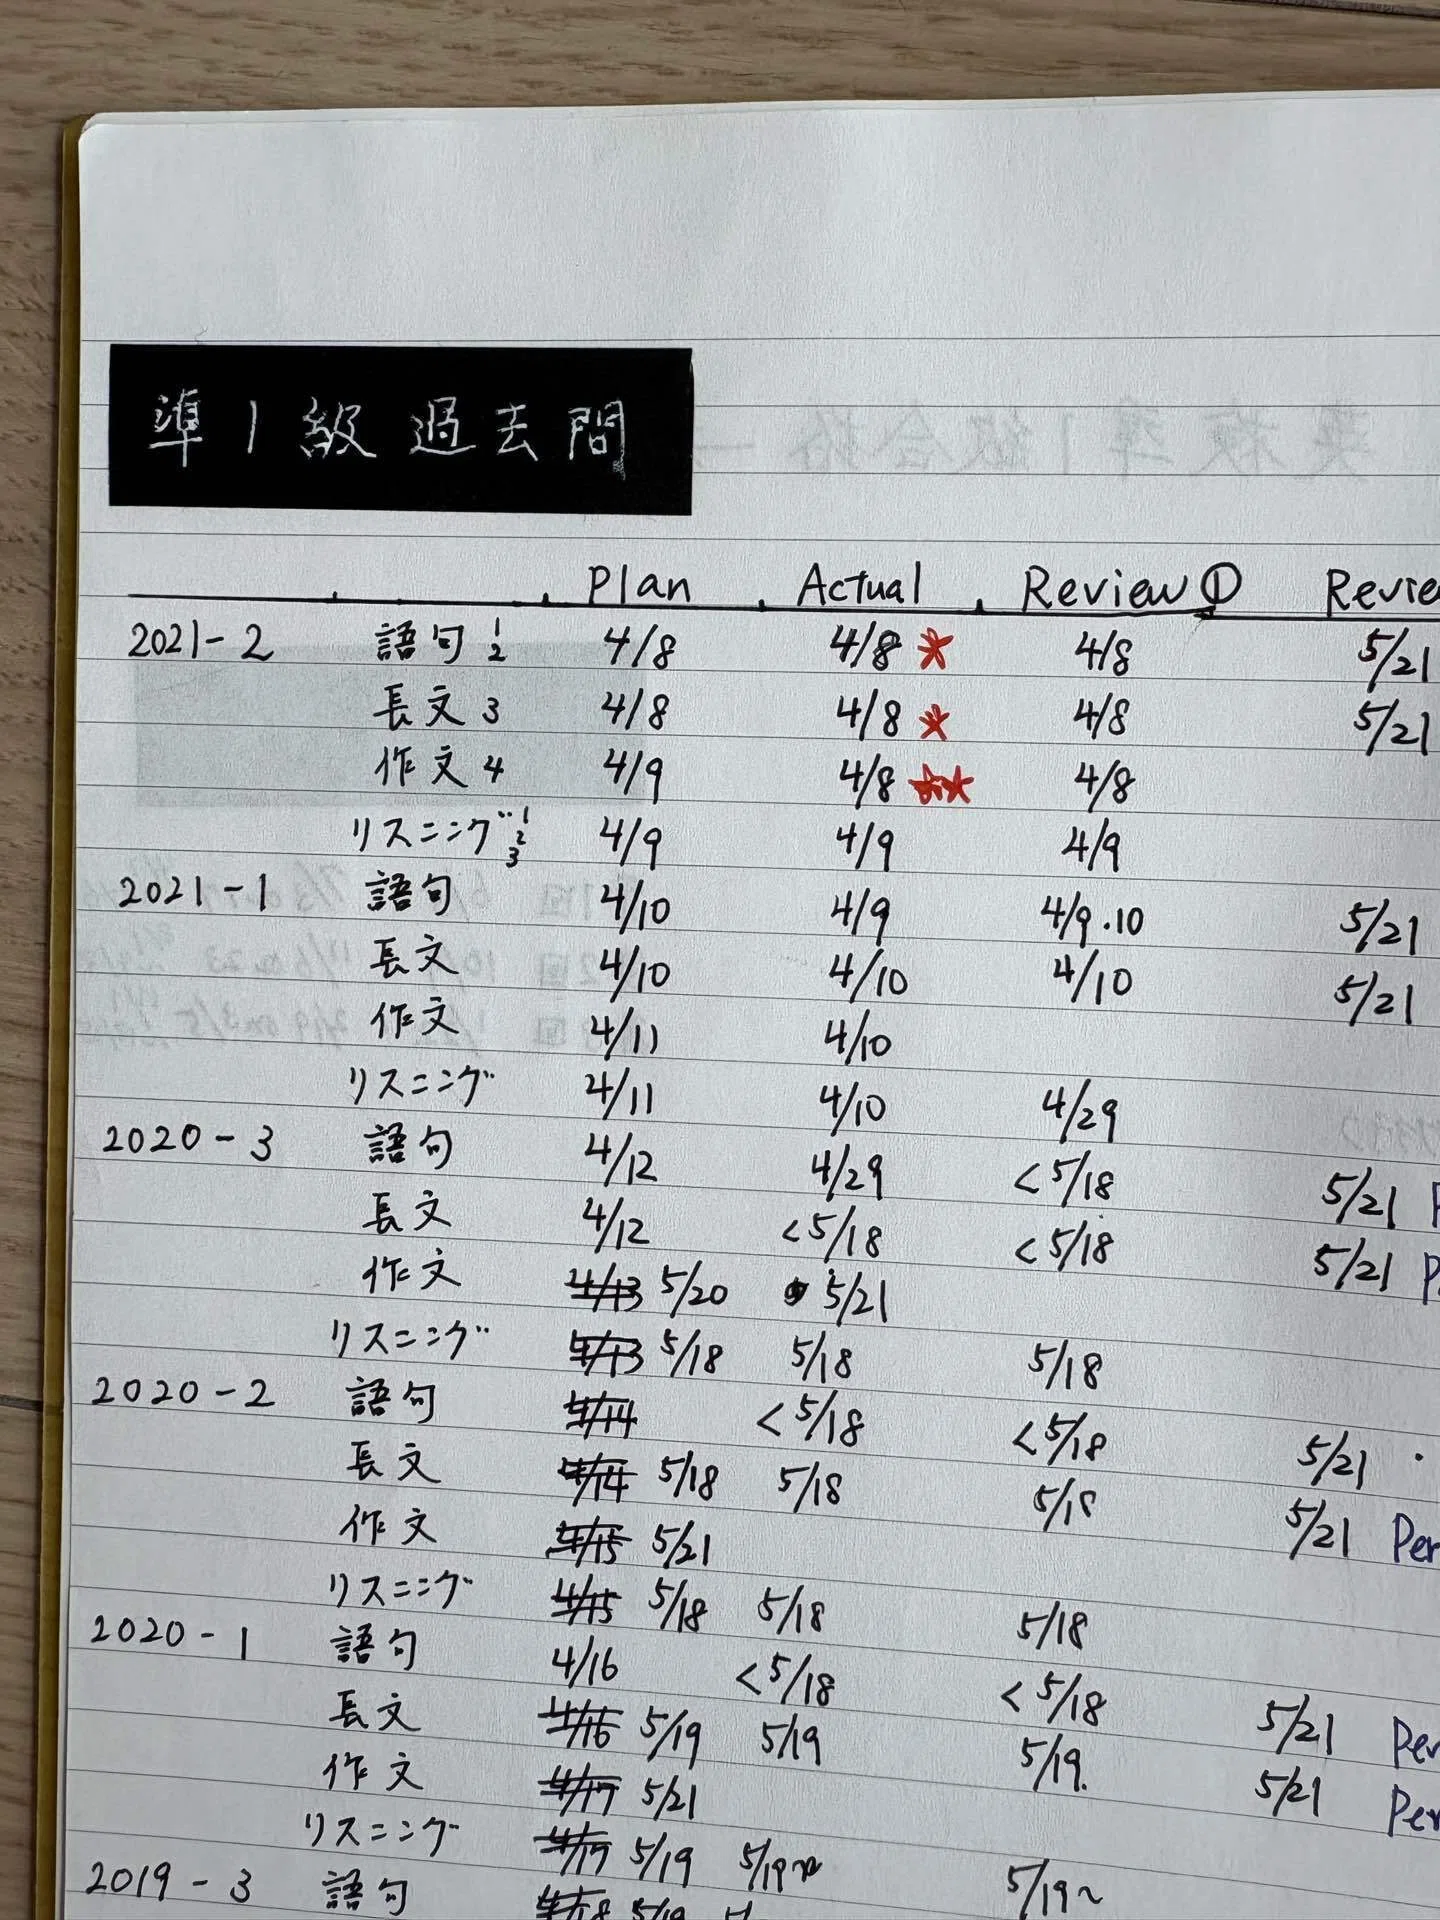 準1級過去問
Plan Actual Review① Revie
2021-2 語句 1 2 4/8 4/8 4/8 5/21
長文 3 4/8 4/8 4/8 5/21
作文 4 4/9 4/8 4/8
リスニング 1 2 3 4/9 4/9 4/9
2021-1 語句 4/10 4/9 4/9.10 5/21
長文 4/10 4/10 4/10 5/21
作文 4/11 4/10
リスニング 4/11 4/10 4/29
2020-3 語句 4/12 4/29 <5/18 5/21
長文 4/12 <5/18 <5/18 5/21
作文 4/13 5/20 5/21
リスニング 4/13 5/18 5/18 5/18
2020-2 語句 4/14 <5/18 <5/18 5/21
長文 4/14 5/18 5/18 5/18 5/21 Per
作文 4/15 5/21
リスニング 4/15 5/18 5/18 5/18
2020-1 語句 4/16 <5/18 <5/18 5/21 Per
長文 4/16 5/19 5/19 5/19. 5/21 Per
作文 4/17 5/21
リスニング 5/19 5/19~ 5/19~
2019-3 語句 4/18 5/19